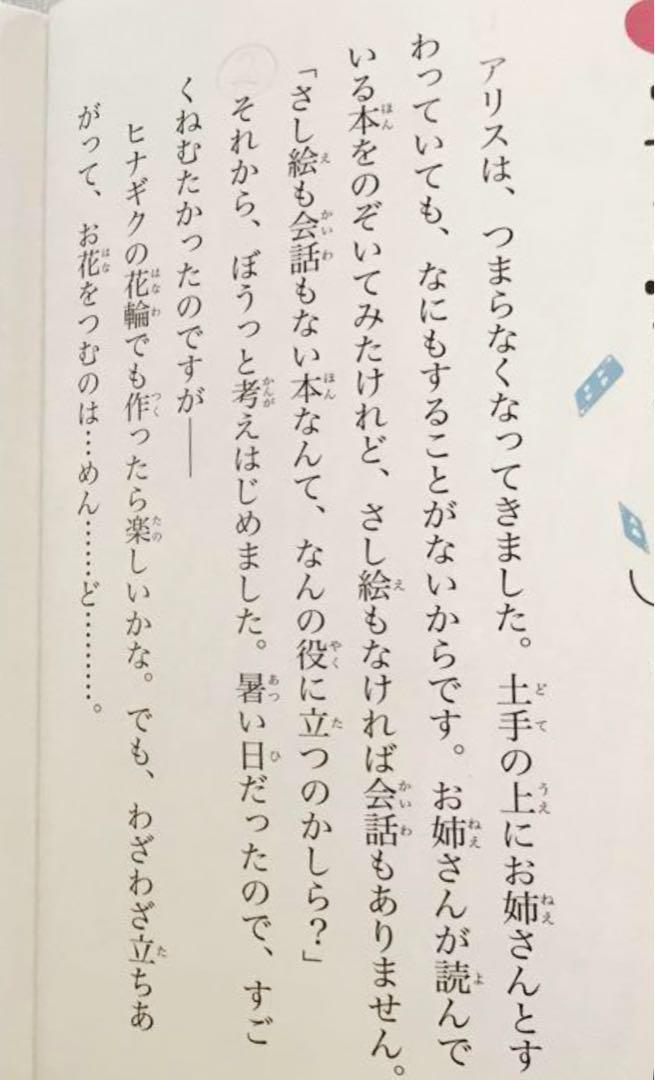 アリスは、つまらなくなってきました。土手の上にお姉さんとす
わっていても、なにもすることがないからです。お姉さんが読んで
いる本をのぞいてみたけれど、さし絵もなければ会話もありません。
「さし絵も会話もない本なんて、なんの役に立つのかしら?」
②
それから、ぼうっと考えはじめました。暑い日だったので、すご
くねむたかったのですが――
ヒナギクの花輪でも作ったら楽しいかな。でも、わざわざ立ちあ
がって、お花をつむのは…めん……ど………。